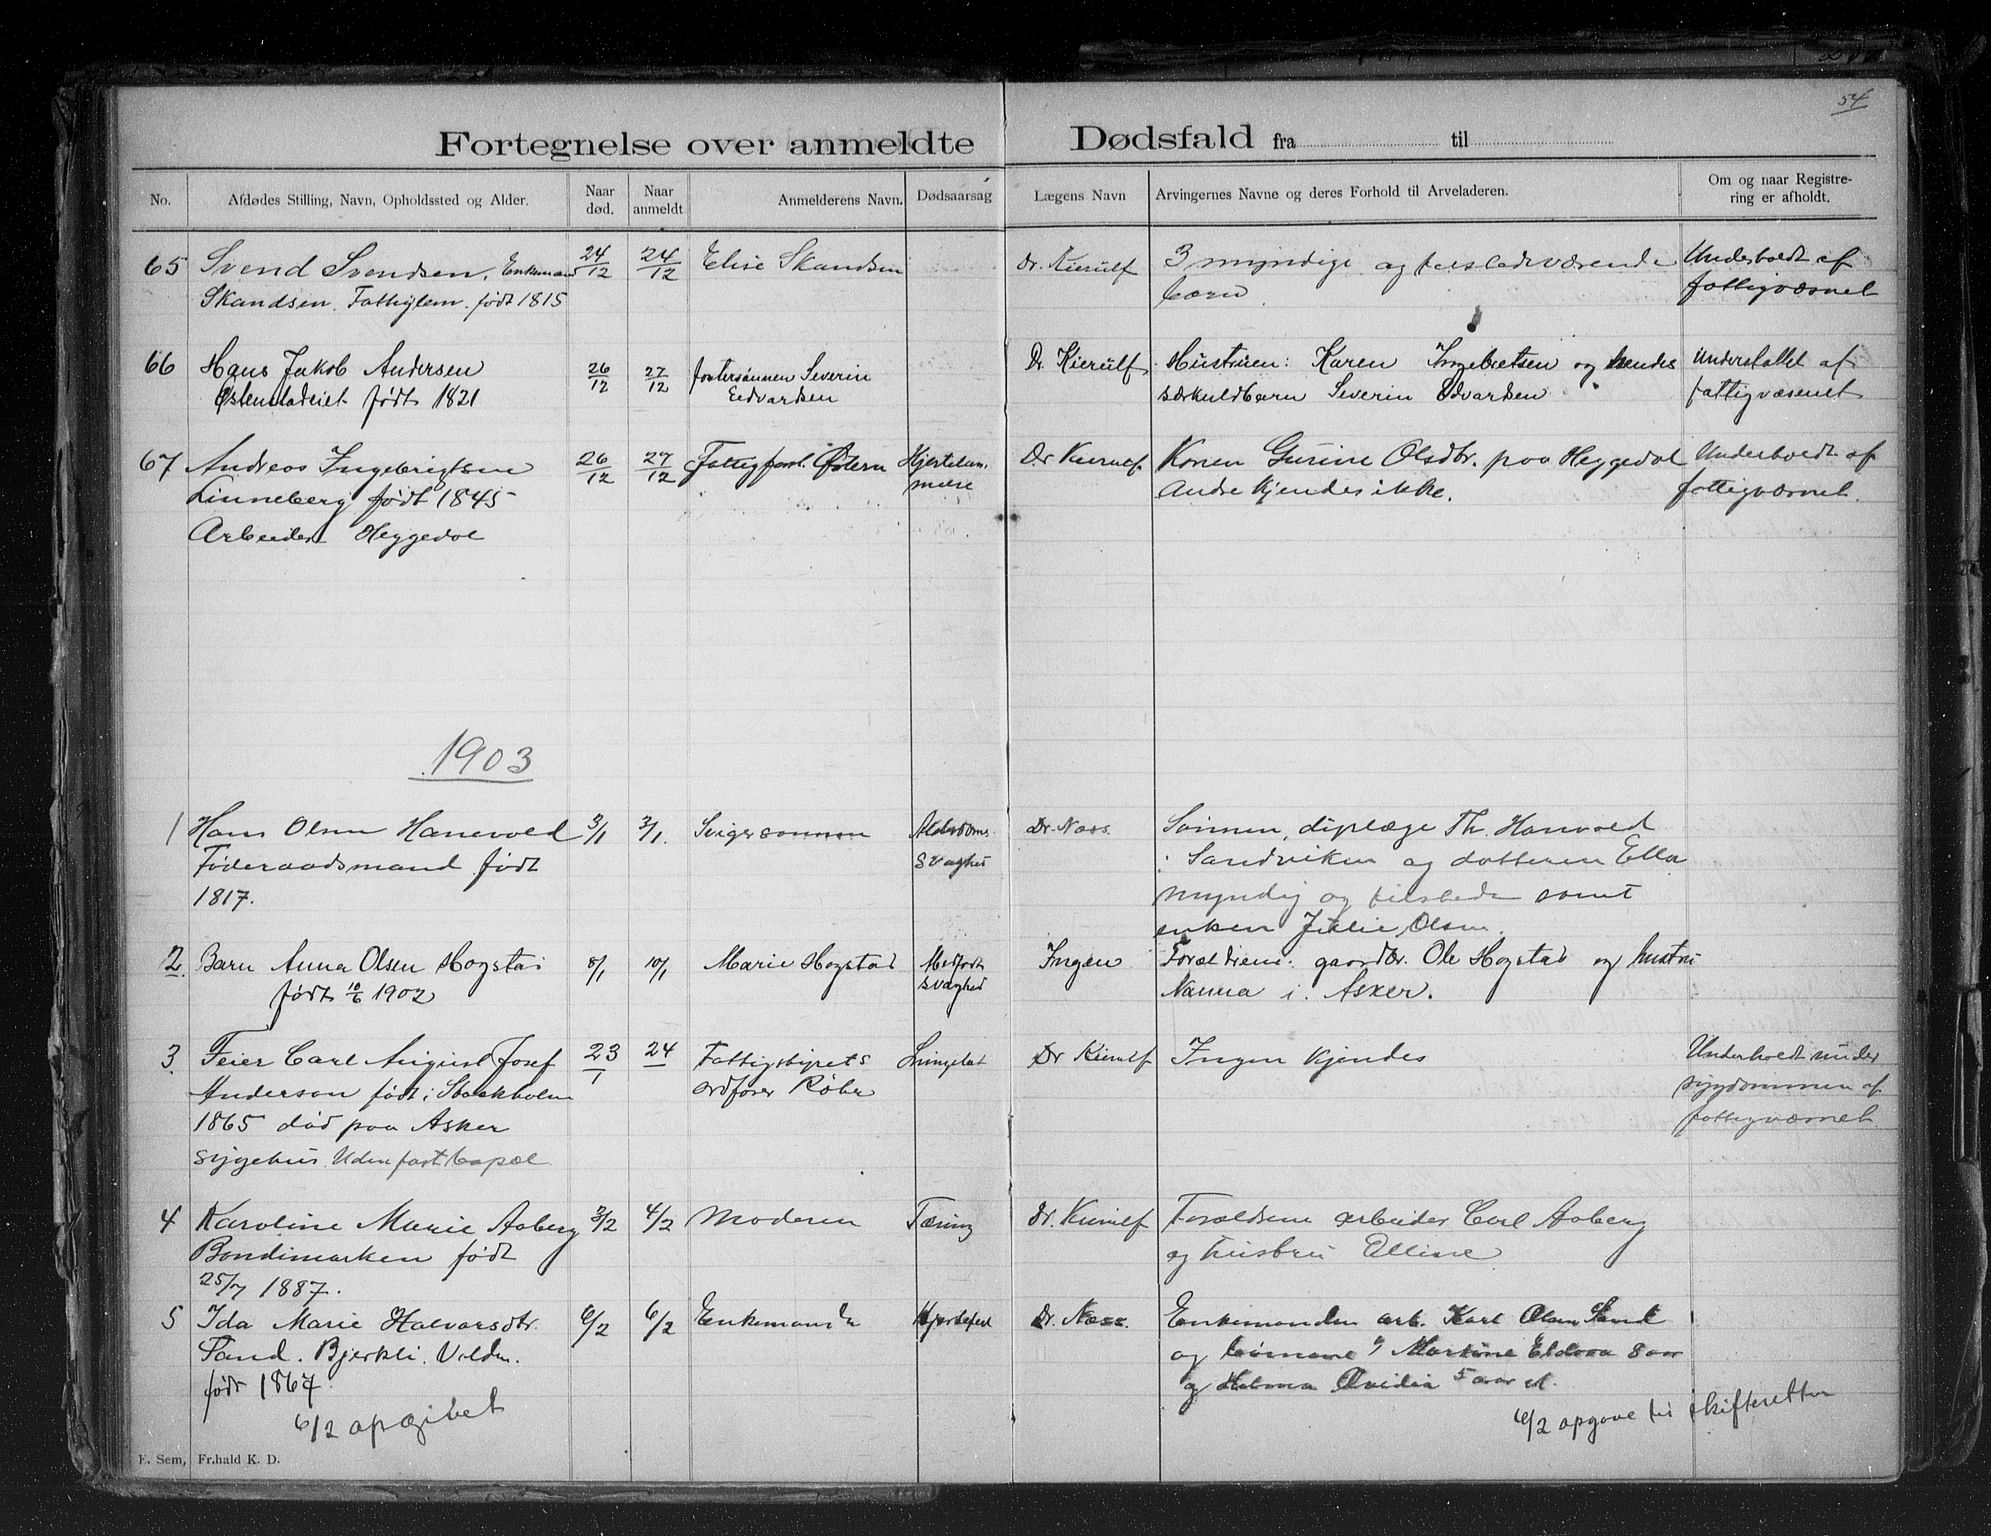 54
Fortegnelse over anmeldte Dødsfald fra til
No. Afdødes Stilling, Navn, Opholdssted og Alder. Naar død. Naar anmeldt Anmelderens Navn. Dødsaarsag Lægens Navn Arvingernes Navne og deres Forhold til Arveladeren. Om og naar Registrering er afholdt.
65 Svend Svendsen, Enkemand 24/12 24/12 Elise Skandsen Dr. Kierulf 3 myndige og tilstedeværende Underholdt af
Skandsen. Fattiglem. født 1815 børn. fattigvæsnet
66 Hans Jakob Andersen 26/12 27/12 fostersønnen Severin Dr. Kierulf Hustruen: Karen Ingebretsen og hendes Understøttet af
Østenstadeiet født 1821 Edvardsen særkuldbarn Severin Edvardsen fattigvæsenet
67 Andreas Ingebrigtsen 26/12 27/12 Fattigforst. Østern Hjertelam- Dr Kierulf Konen Gurine Olsdtr. paa Heggedal Underholdt af
Linneberg født 1845 melse Andre kjendes ikke. fattigvæsnet.
Arbeider Heggedal
1903
1 Hans Olsen Hanevold 3/1 3/1. Svigersønnen Alderdoms- Dr. Næss. Sønnen, diplæge Th. Hanvold
Føderaadsmand født svaghed i Sandviken og datteren Ella
1817. myndig og tilstede samt
enken Julie Olsen.
2. Barn Anna Olsen Hogstad 8/1 10/1 Marie Hogstad Medfødt Ingen Forældrene: gaardbr. Ole Hogstad og hustru
født 10/6 1902 svaghed Nanna i Asker.
3. Feier Carl August Josef 23/1 24 Fattigstyrets Lungebet Dr Kierulf Ingen kjendes Underholdt under
Anderson født i Stockholm ordfører Røhr sygdommen af
1865 død paa Asker fattigvæsnet.
sygehus. Uden fast bopæl
4 Karoline Marie Aaberg 3/2 4/2 Moderen Tæring Dr. Kierulf Forældrene arbeider Carl Aaberg
Bondimarken født og hustru Elline
25/7 1887.
5 Ida Marie Halvorsdtr. 6/2 6/2 Enkemanden Hjertefeil Dr. Næss. Enkemanden arb. Karl Olsen Sand
Sand. Bjerkli. Valden. og børnene Martine Eldora 8 aar
født 1867. og Halma Ovidia 5 aar
6/2 opgivet 6/2 opgave til skifteretten
E. Sem, Fr.hald K. D.